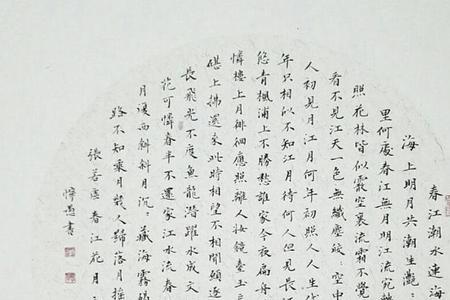 春江潮水連海
海上明月共潮生灩
里何處春江無月明江流宛
照花林皆似霰空裏流霜不覺
看不見江天一色無纖塵皎〻空中
人初見月江月何年初照人人生
年只相似不知江月待何人但見長江
悠青楓浦上不勝愁誰家今夜扁舟
憐樓上月徘徊應照離人妝鏡臺玉
碪上拂還來此時相望不相聞願逐
長飛光不度魚龍潛躍水成文
花可憐春半不還家江水流春
月復西斜斜月沉〻藏海霧碣
路不知乘月幾人歸落月搖
張若虛春江花月
書